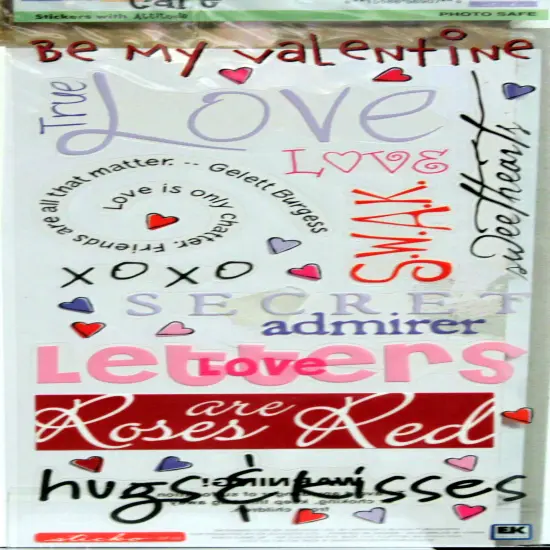 Care
Stickers with Attitude
PHOTO SAFE
Be my valentine
True Love
LOVE
Love is only chatter. Friends are all that matter. -- Gelett Burgess
S.W.A.K.
sweethearts
XOXO
SECRET
admirer
LeTTers
LOVE
Roses are Red
hugs & kisses
sticko
EK